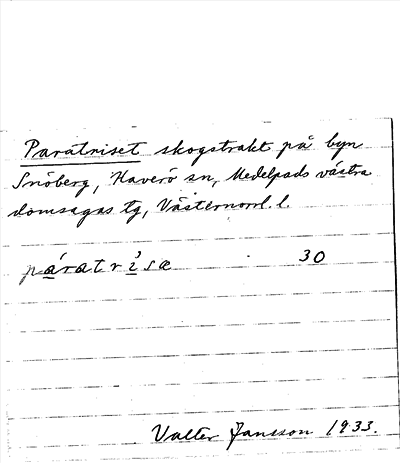 Paratriset skogstrakt på byn
Snöberg, Haverö sn, Medelpads västra
domsagas tg, Västernorrl. l.
páratrísa 30
Valter Jansson 1933.